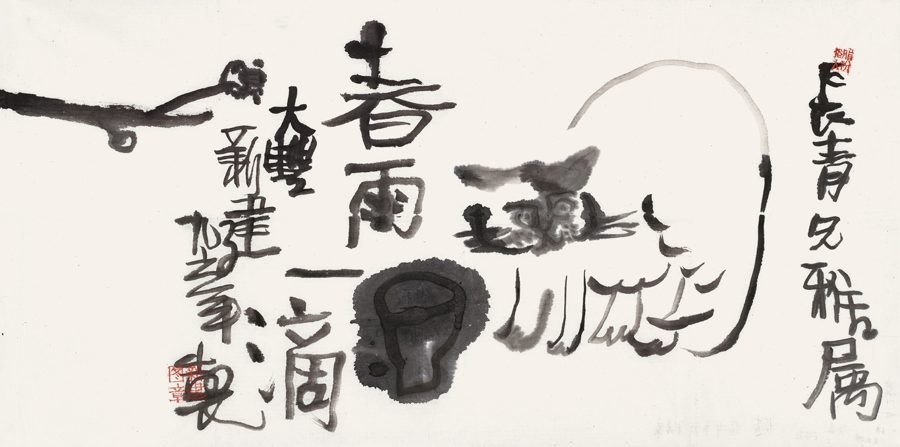 長青兄雅属
春雨一滴
大豐
新建
九年製